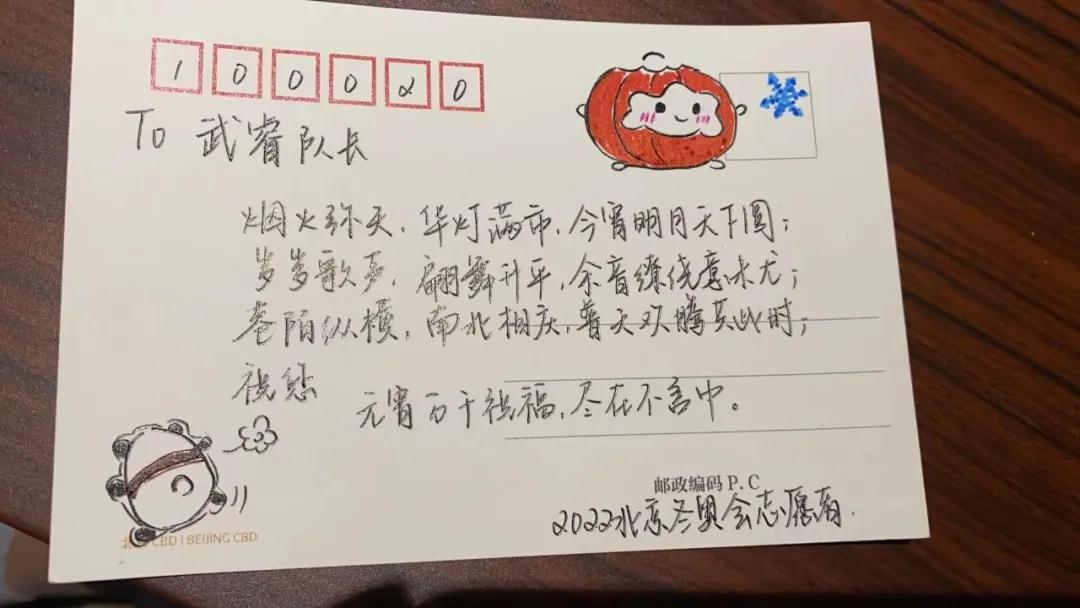 100020
To 武睿队长
烟火弥天，华灯满市，今宵明月天下圆；
岁岁歌声，翩舞升平，余音缭绕意味尤；
巷陌纵横，南北相庆，普天欢腾共此时；
祝您
元宵万千祝福，尽在不言中。
邮政编码 P.C
2022北京冬奥会志愿者.
CBD | BEIJING CBD